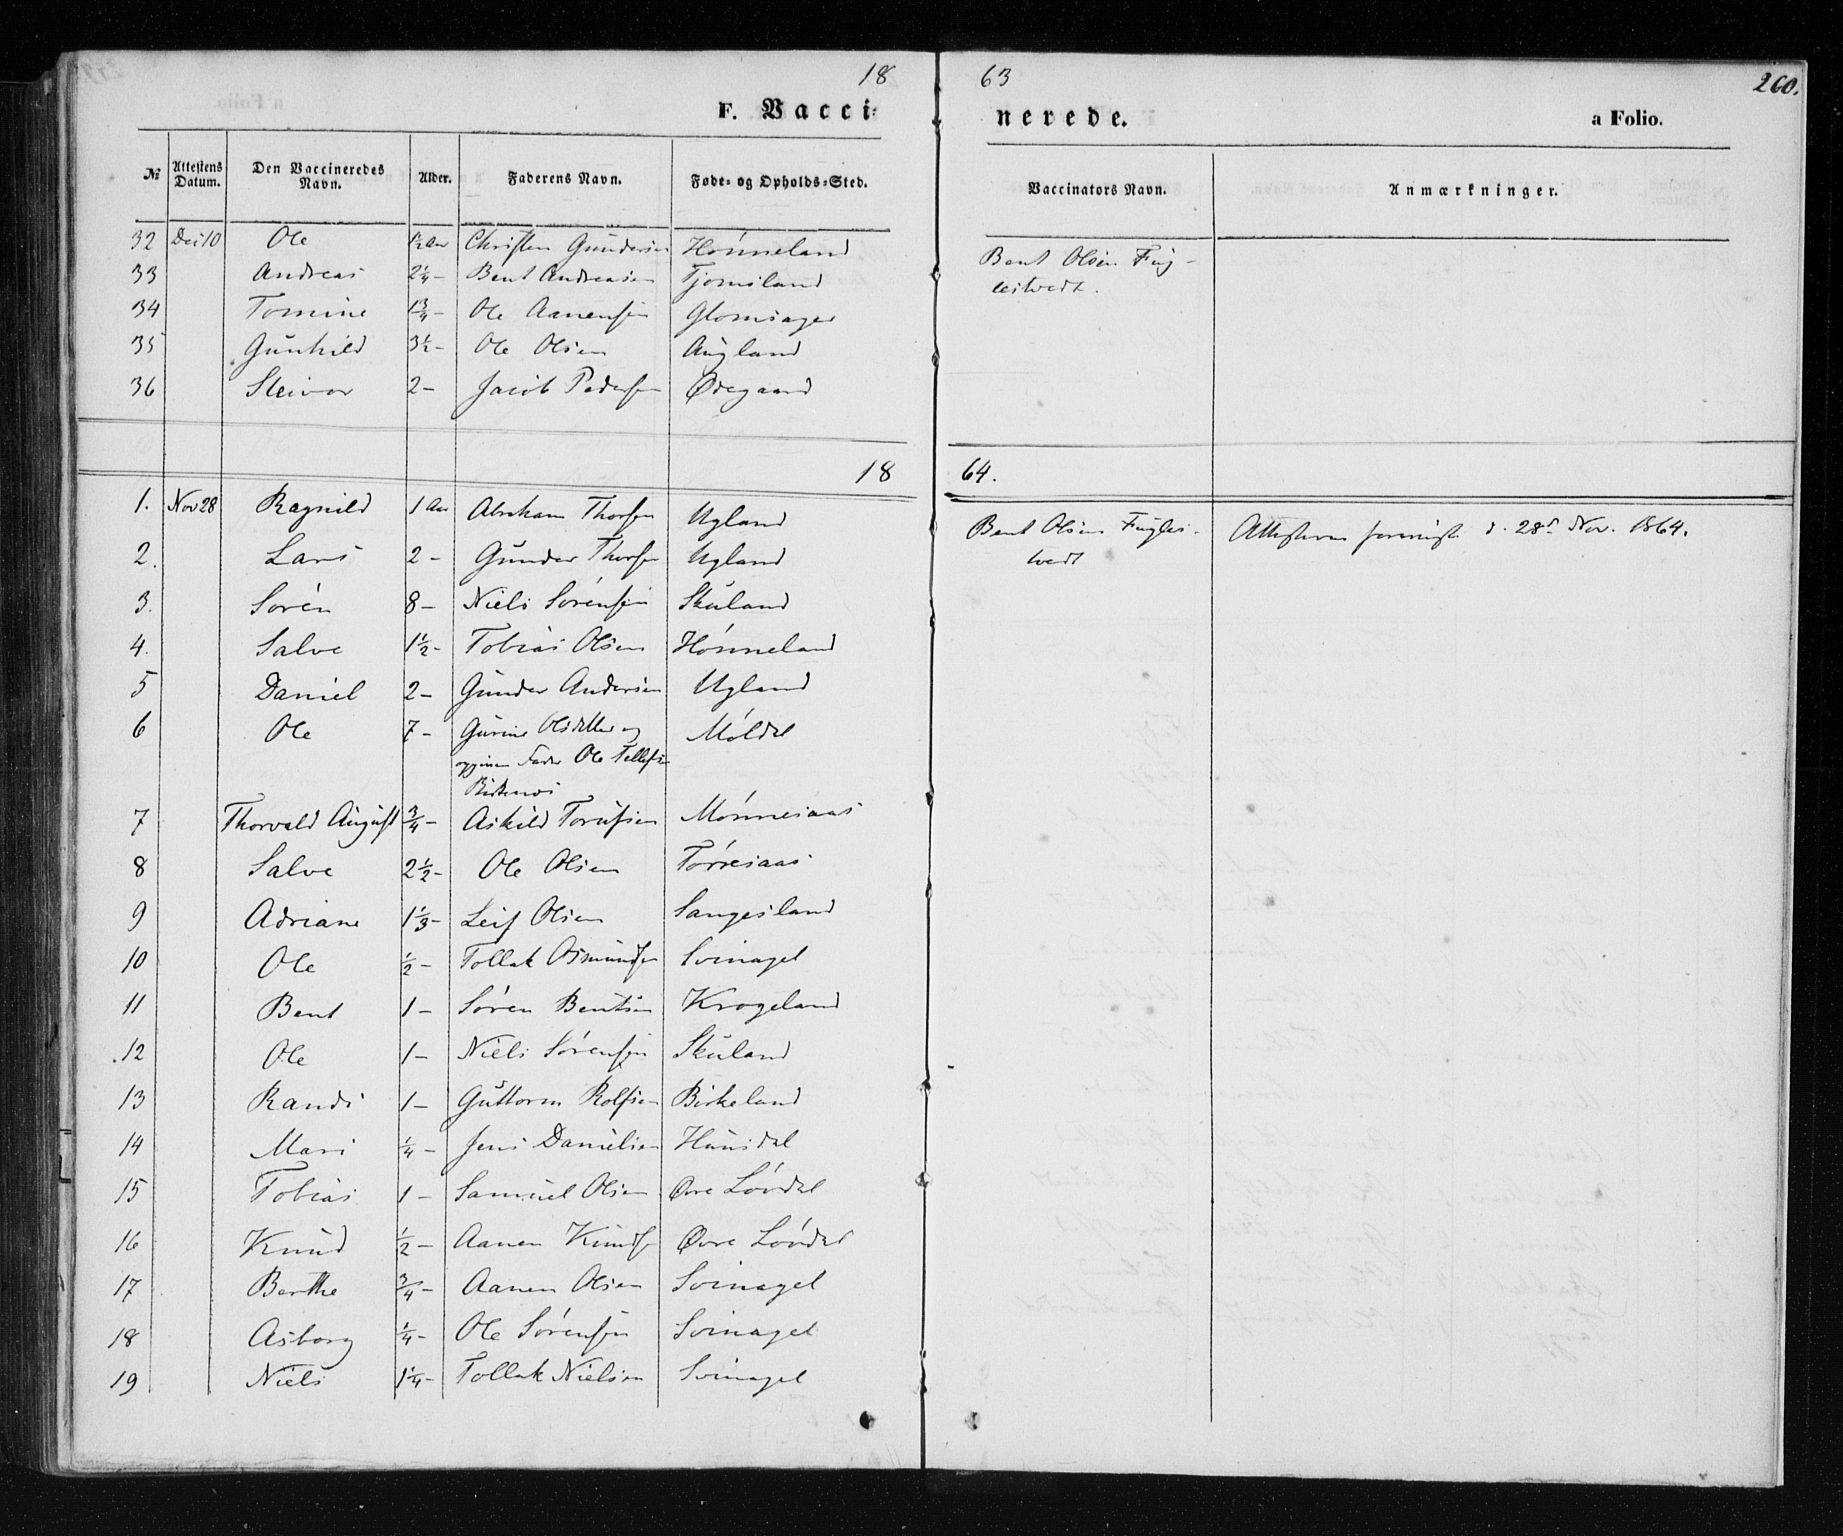 18 63 260.
F. Vacci- nerede. a Folio.
№ Attestens Datum. Den Vaccineredes Navn. Alder. Faderens Navn. Føde- og Opholds-Sted. Vaccinators Navn. Anmærkninger.
32 Dec 10 Ole ½ Aar Christen Gundersen Hónneland Bent Olsen Fug-
33 Andreas 2¼ - Bent Andreasen Tjomsland lestvedt.
34 Tomine 1¾ - Ole Aanensen Glomsager
35 Gunhild 3½ - Ole Olsen Augland
36 Steivor 2 - Jacob Pedersen Ødegaard
18 64.
1. Nov 28 Ragnild 1 Aar Abraham Thorsen Ugland Bent Olsen Fugles- Attesterne foreviist d. 28d Nov. 1864.
2. Lars 2 - Gunder Thorsen Ugland tvedt
3. Sorén 8 - Niels Sørensen Skuland
4. Salve 1½ - Tobias Olsen Hónneland
5 Daniel 2 - Gunder Andersen Ugland
6 Ole 7 - Gurine Olsdatter og Móldal
opgiven Fader Ole Tellefsen
Birkenes
7 Thorvald August ¾ - Askild Torufsen Mónnesaas
8 Salve 2½ - Ole Olsen Tórresaas
9 Adriane 1⅓ - Leif Olsen Sangesland
10 Ole ½ - Tollak Osmundsen Svinagel
11 Bent 1 - Søren Bentsen Krogeland
12 Ole 1 - Niels Sørensen Skuland
13 Randi 1 - Guttorm Rolfsen Birkeland
14 Mari ¼ - Jens Danielsen Hunsdal
15 Tobias 1 - Samuel Olsen Øvre Lóvdal
16 Knud ½ - Aanen Knudsen Øvre Lóvdal
17 Berthe ¾ - Aanen Olsen Svinagel
18 Asborg ¼ - Ole Sørensen Svinagel
19 Niels 1¼ - Tollak Nielsen Svinagel